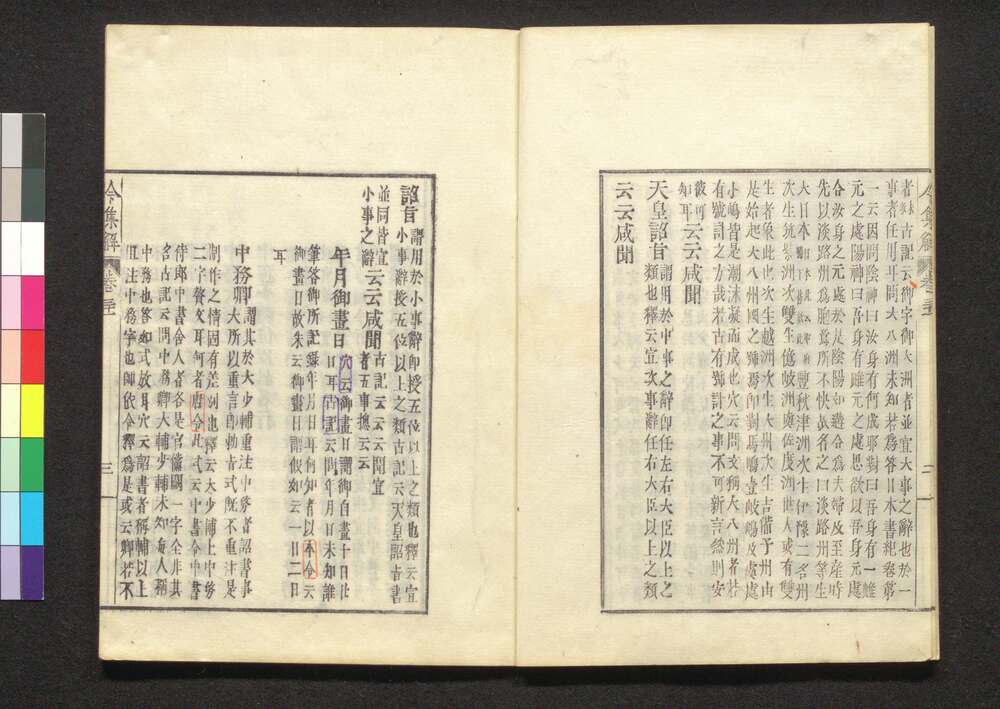 者 古記云御字御大洲者並宜大事之辭也於一
事者任用耳問大八洲未知若爲答日本書紀卷第
一云因問陰神曰汝身有何成耶對曰吾身有一雌
元之處陽神曰吾身有雄元之處思欲以吾身元處
合汝身之元處於是陰陽始遘合爲夫婦及至產時
先以淡路洲爲胞意所不快故名之曰淡路州等生
大日本 豐秋津洲次生伊豫二名州
次生筑紫洲次雙生億岐洲與佐度洲世人或有雙
生者象此也次生越洲次生大州次生吉備子州由
是始起大八州國之號焉卽對馬嶋壹岐嶋及處處
小嶋皆是潮沫凝而成也穴云問文稱大八州者若
有號計之方哉若古有號計之事不可新言然則安
彼可
知耳云云咸聞
天皇詔旨 謂用於中事之辭卽任左右大臣以上之
類也釋云宣次事辭任右大臣以上之類
云云咸聞
令集解 卷三十一
二
詔旨 謂用於小事辭卽授五位以上之類也釋云宣
小事辭授五位以上之類古記云天皇詔旨書
並同皆宣
小事之辭云云咸聞 古記云云云聞宣
者五事揔云云
年月御畫日 穴云御畫日謂御自畫十日廿
日耳古記云問年月日未知誰
筆答御所記錄年月日耳何知者以本令云
御畫日故朱云御畫日謂假如云一日二日
耳
中務卿 謂其於大少輔注中務者詔書事
大所以重言自勅旨式旣不重注是
制作之情因有差別也釋云大少輔上中務
二字贅文耳何者唐令此式云中書令中書
侍郎中書舍人者各是官備闕一字全非其
名古記云問中務卿大輔少輔未知
中務也答如式放耳穴云詔書者稱輔以上
且注中務字也師依令釋爲是或云卿若不
令集解 卷三十一
三